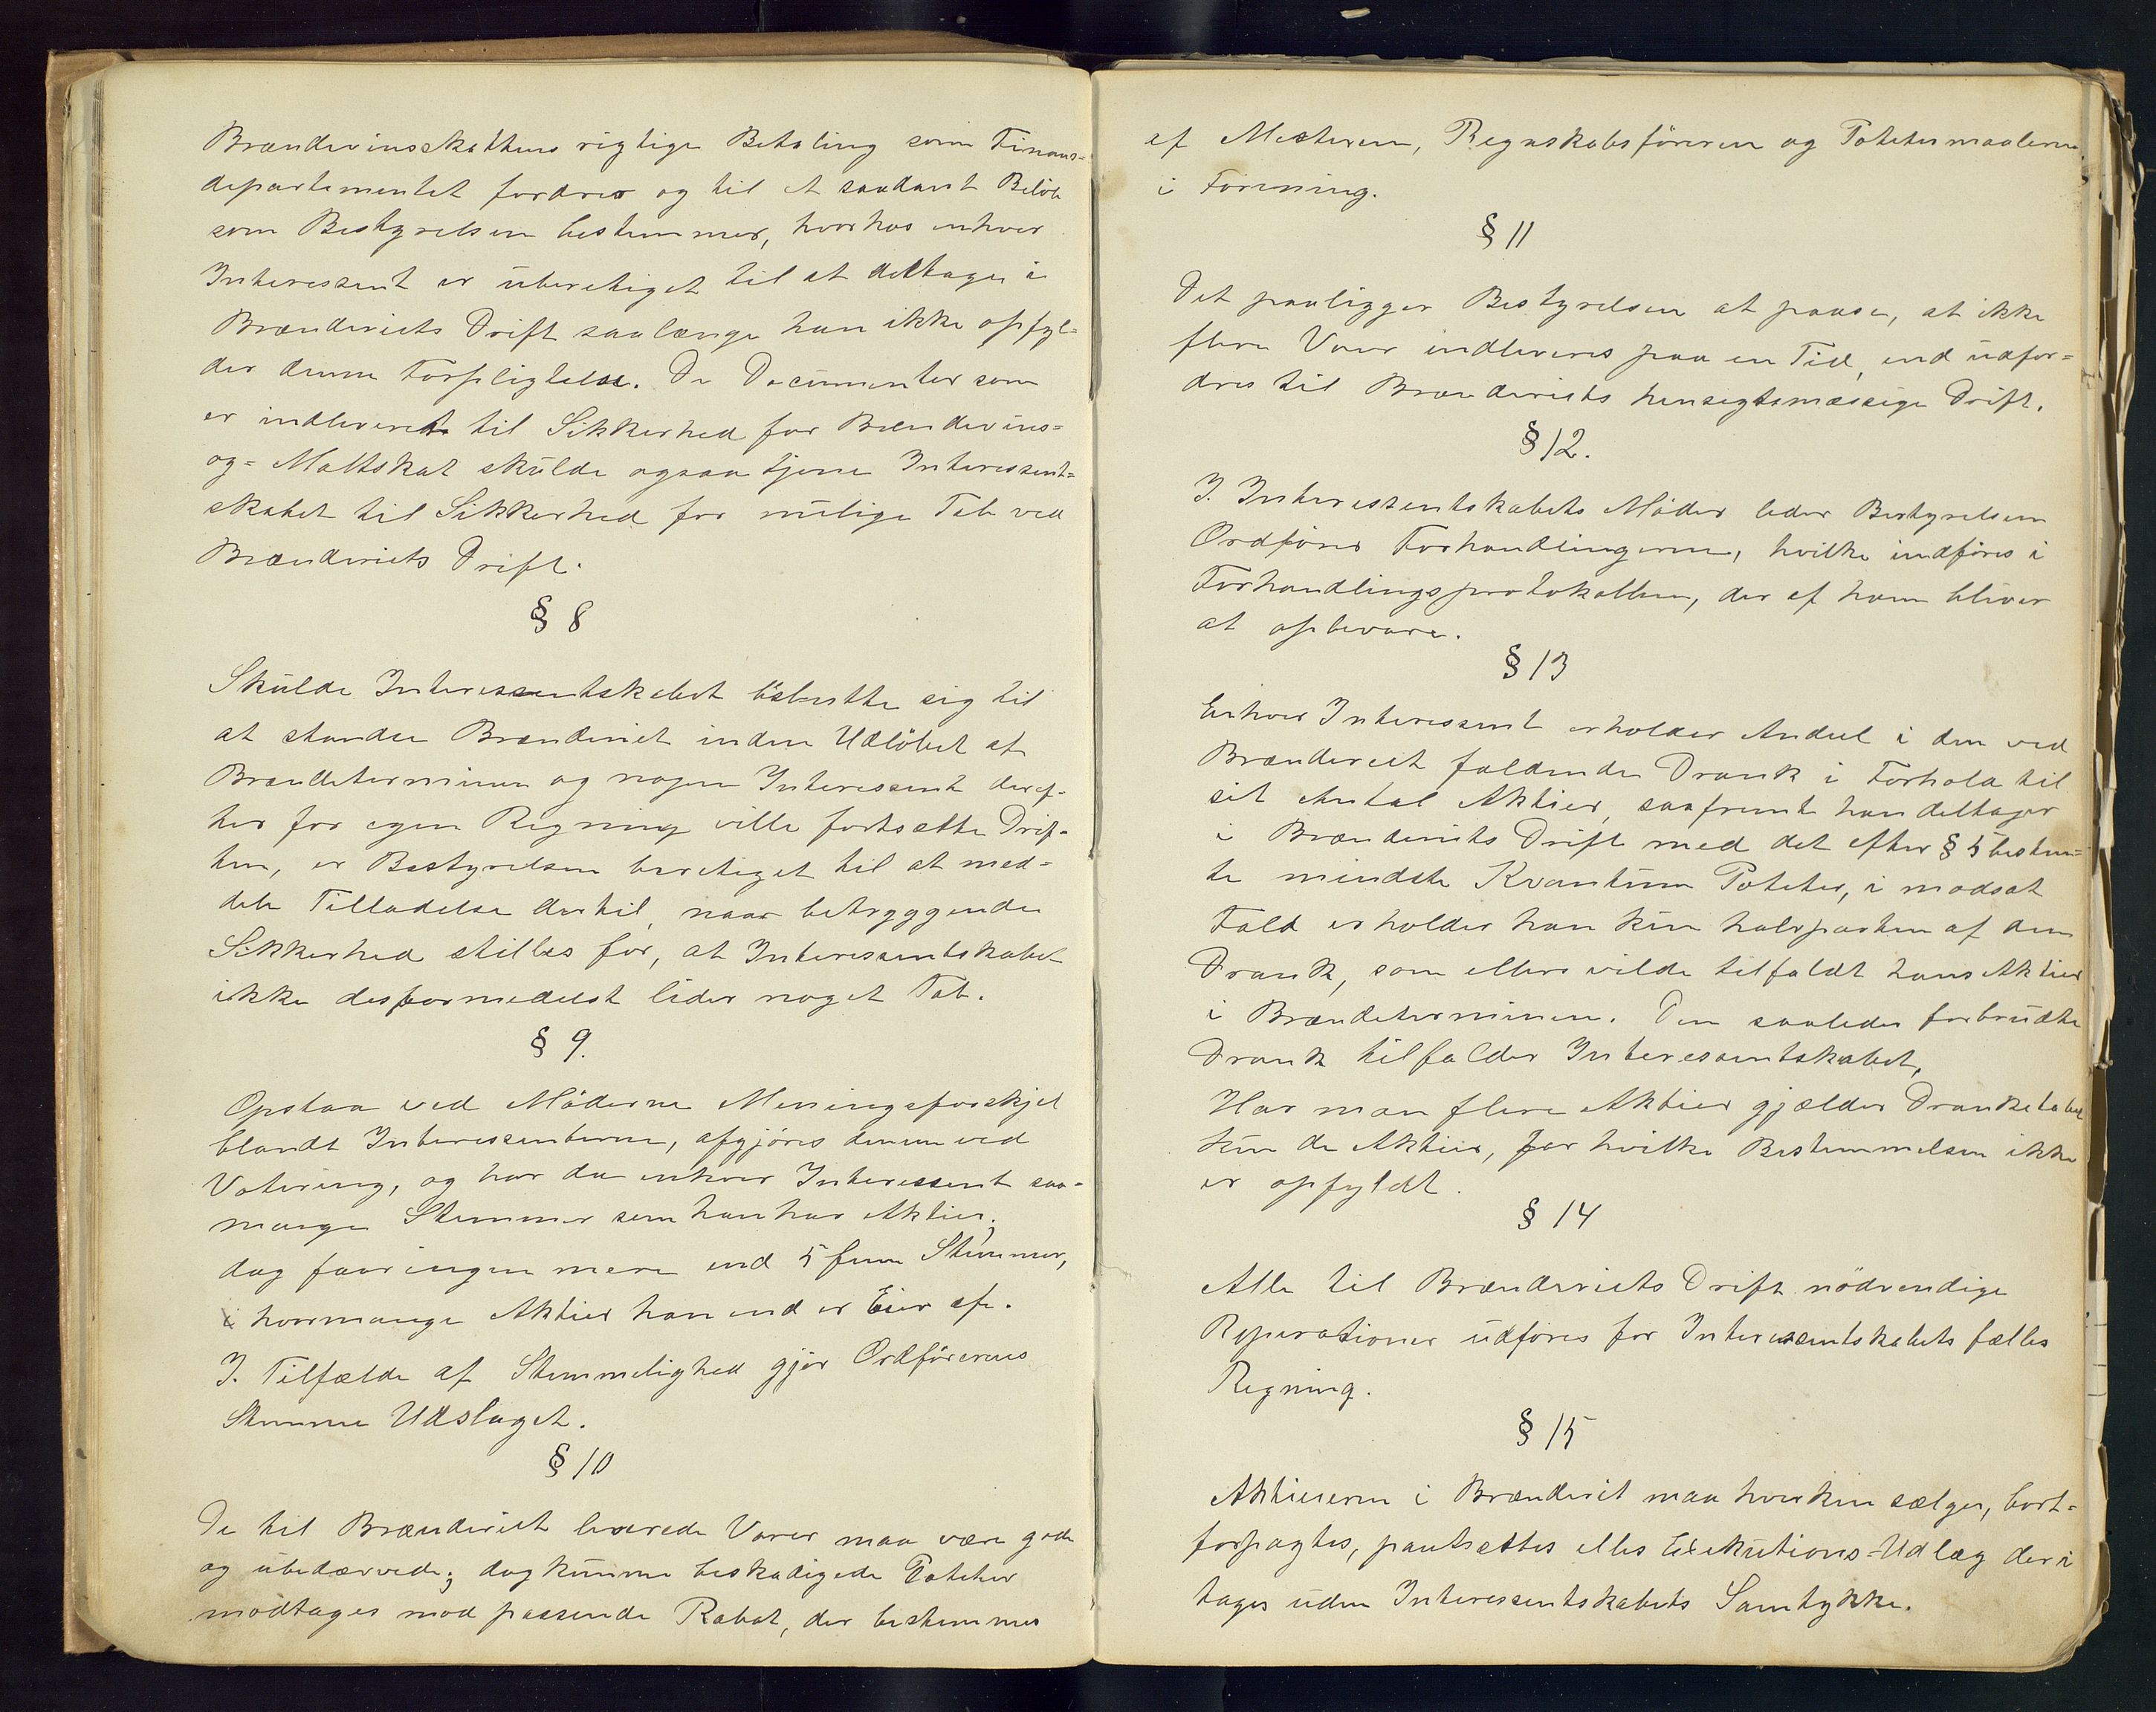 Brændevinsskattens rigtige Betaling som Finans-
departementet fordrer og til et saadant Beløb
som Bestyrelsen bestemmer, hvorhos enhver
Interessent er uberetiget til at deltage i
Brænderiets Drift saalænge han ikke opfyl-
der denne Forpligtelse. De Documenter som
er indleveret til Sikkerhed for Brændevins-
og-Maltskat skulde ogsaa tjene Interessent-
skabet til Sikkerhed for mulige Tab ved
Brænderiets Drift.
§ 8
Skulde Interessentskabet beslutte sig til
at standse Brænderiet inden Udløbet af
Brændeterminen og nogen Interessent deref-
ter for egen Regning ville fortsætte Drif-
ten, er Bestyrelsen beretiget til at med-
dele Tilladelse dertil, naar betryggende
Sikkerhed stilles for, at Interessentskabet
ikke desformedelst lider noget Tab.
§ 9.
Opstaa ved Møderne Meningsforskjel
blandt Interessenterne, afgjøres denne ved
Votering, og har da enhver Interessent saa-
mange Stemmer som han har Aktier;
dog faar ingen mere end 5 fem Stemmer,
hvormange Aktier han end er Eier af.
I. Tilfælde af Stemmelighed gjør Ordførerens
Stemme Udslaget.
§ 10
De til Brænderiet leverede Varer maa være gode
og ubedærvede; dog kunne beskadigede Poteter
modtages mod passende Rabat, der bestemmes
af Mesteren, Regnskabsføreren og Potetesmaaleren
i Forening.
§ 11
Det paaligger Bestyrelsen at paase, at ikke
flere Varer indleveres paa en Tid, end udfor-
dres til Brænderiets hensegtsmæssige Drift.
§ 12.
I. Interessentskabets Møder leder Bestyrelsen
Ordfører Forhandlingerne, hvilke indføres i
Forhandlingsprotokollen, der af ham bliver
at opbevare.
§ 13
Enhver Interessent erholder Andeel i den ved
Brænderiet faldende Drank i Forhold til
sit Antal Aktier, saafremt han deltager
i Brænderiets Drift med det efter § 5 bestem-
te mindste Kvantum Poteter, i modsat
Fald erholder han kun halvparten af den
Drank, som ellers vilde tilfaldt hans Aktier
i Brændeterminen. Den saaledes forbrudte
Drank tilfalder Interessentskabet.
Har man flere Aktier gjælder Dranketabet
kun de Aktier, for hvilke Bestemmelsen ikke
er opfyldt.
§ 14
Alle til Brænderiets Drift nødvendige
Reperationer udføres for Interessentskabets fælles
Regning.
§ 15
Aktiererne i Brænderiet maa hverken sælges, bort-
forpagtes, pantsættes elles Exekutions-Udlæg deri
tages uden Interessentskabets Samtykke.